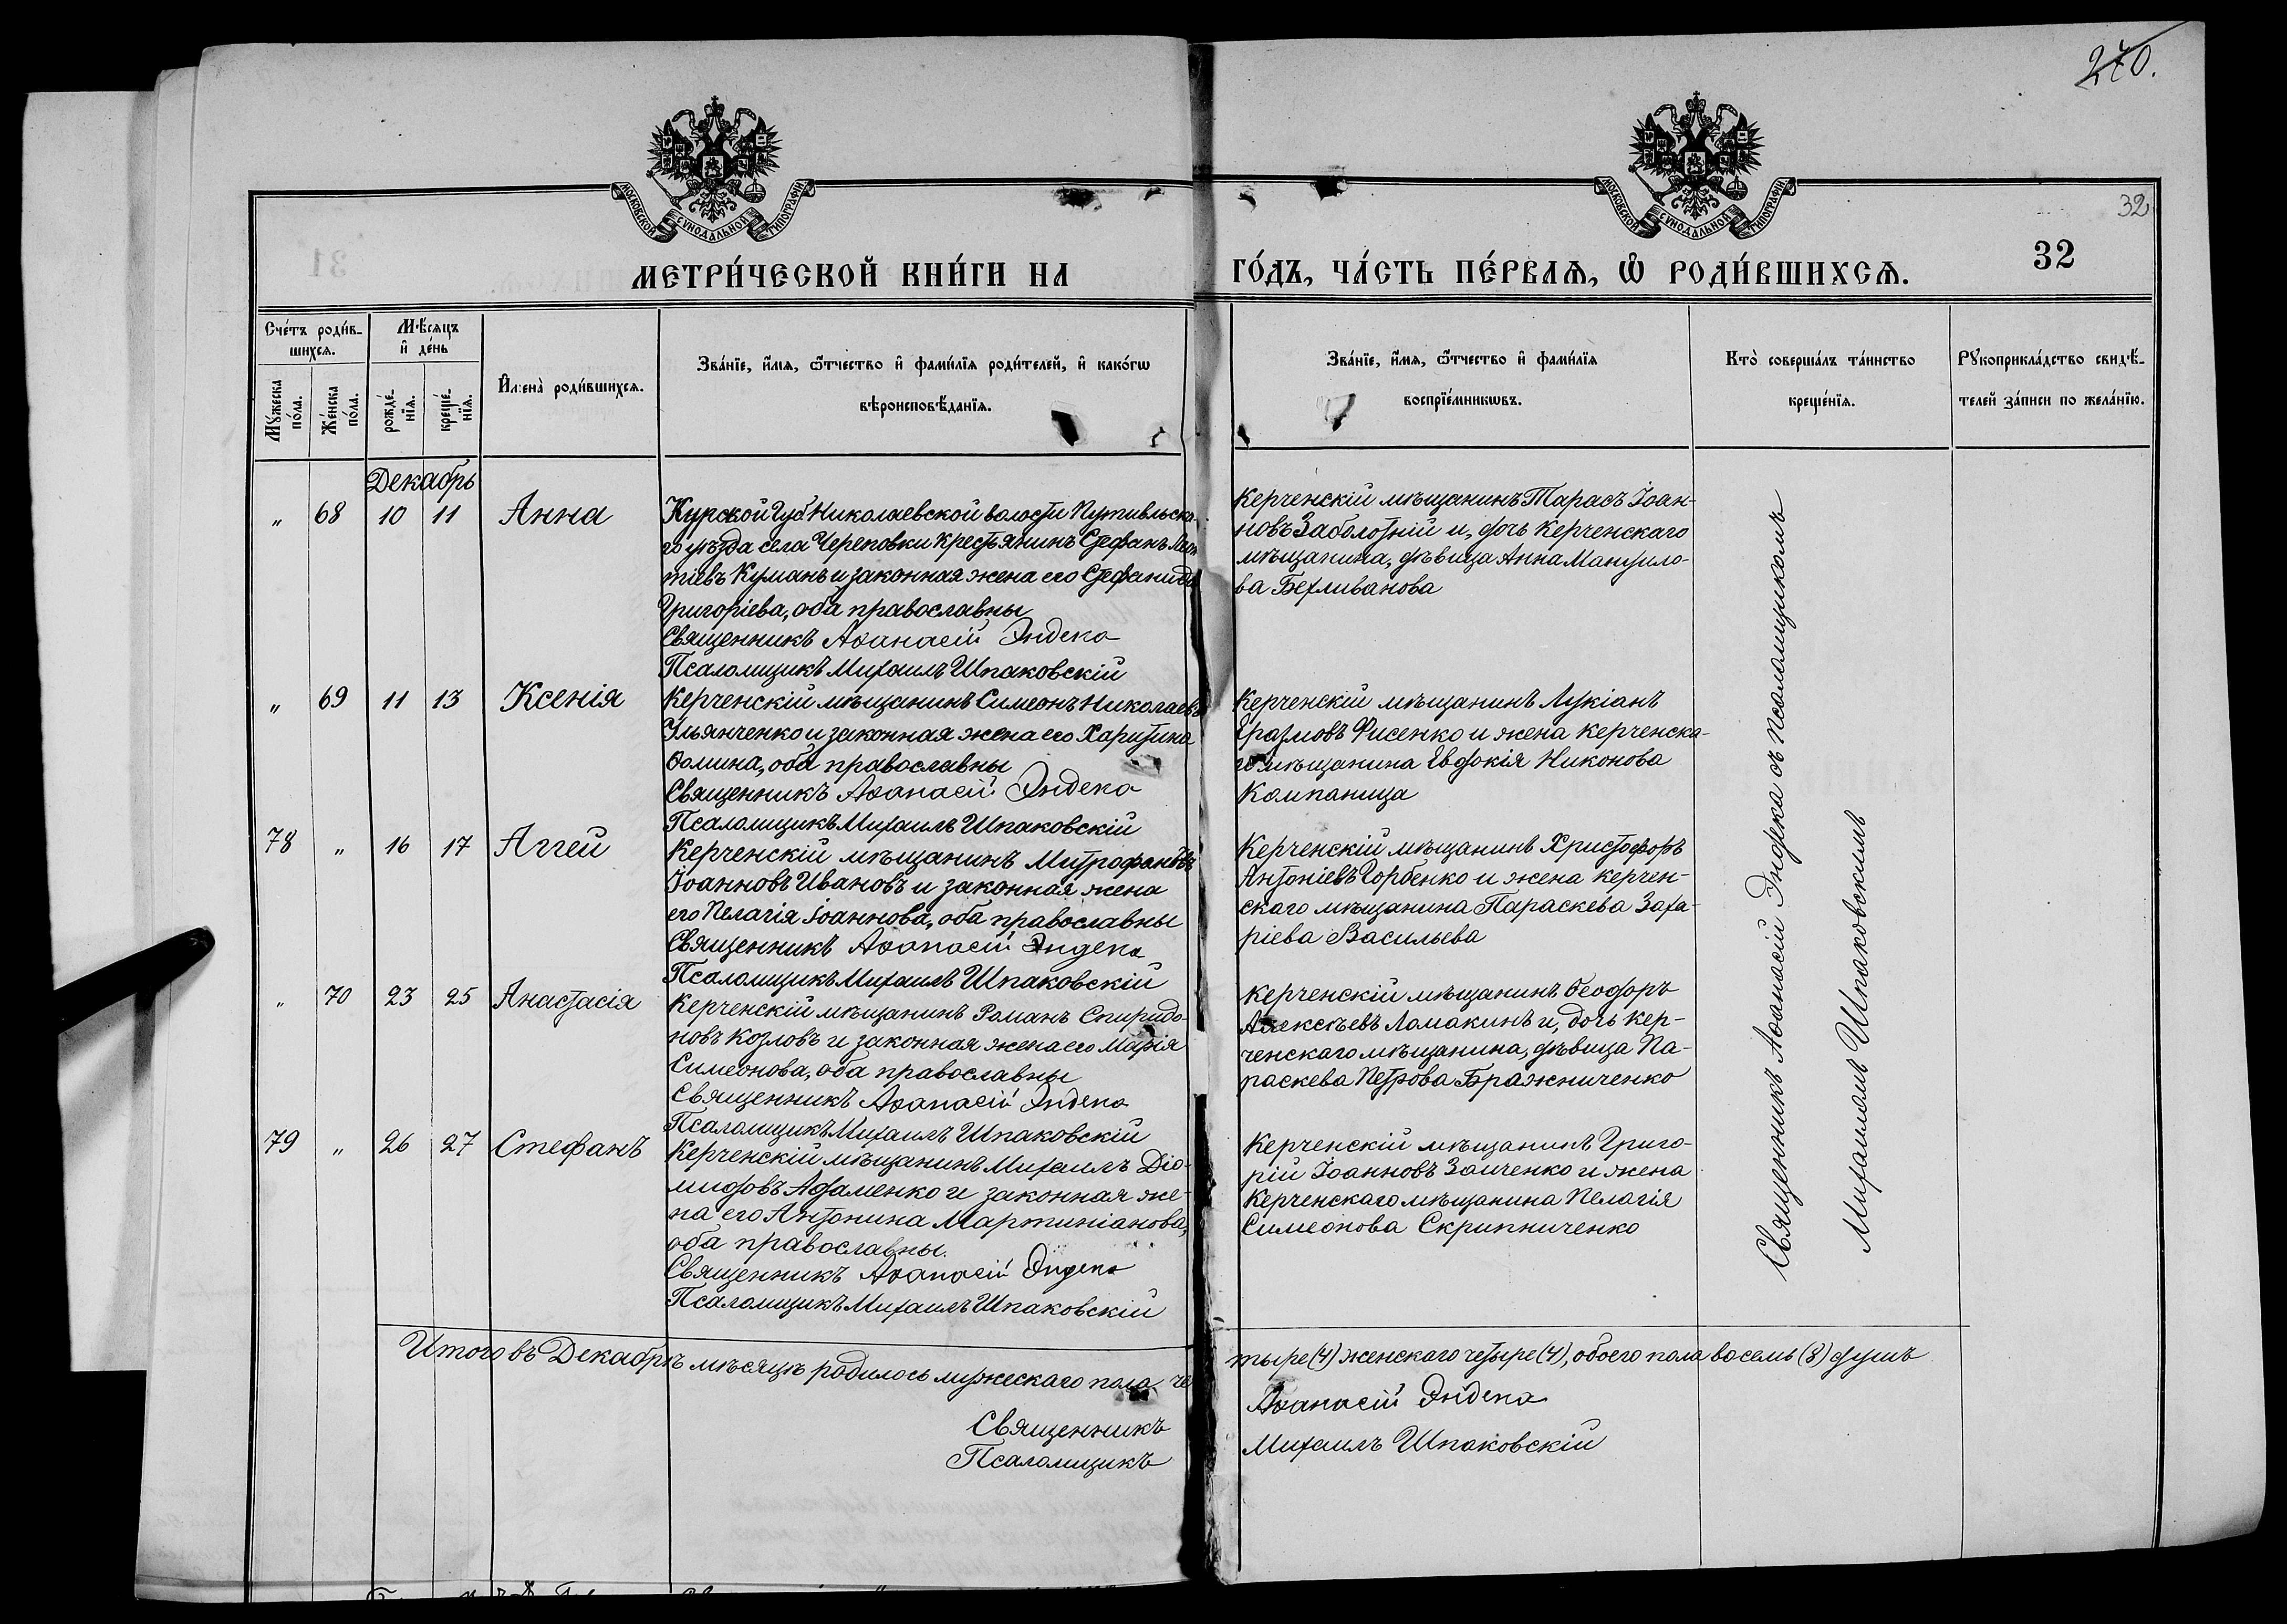 270.
МОСКОВСКОЙ СУНОДАЛЬНОЙ ТИПОГРАФІИ.
МОСКОВСКОЙ СУНОДАЛЬНОЙ ТИПОГРАФІИ.
32
32
МЕТРИ́ЧЕСКОЙ КНИ́ГИ НА
ГО́ДЪ, ЧА́СТЬ ПЕ́РВАѦ, Ѽ РОДИ́ВШИХСѦ.
Сче́тъ роди́в-
шихсѧ.
Мѣ́сѧцъ
и҆ де́нь
Мꙋ́жеска
по́ла.
Же́нска
по́ла.
рожде́-
нїѧ.
креще́-
нїѧ.
И҆мена̀ роди́вшихсѧ.
Зва́нїе, и҆́мѧ, ѻ҆́тчество и҆ фами́лїѧ роди́телей, и҆ како́гѡ
вѣроисповѣ́данїѧ.
Зва́нїе, и҆́мѧ, ѻ҆́тчество и҆ фами́лїѧ
воспрїе́мникѡвъ.
Кто̀ соверша́лъ та́инство
креще́нїѧ.
Рꙋкоприкла́дство свидѣ́-
телей за́писи по жела́нїю.
Декабрь
" 68 10 11 Анна
Курской Губ Николаевской волости Путивльска-
го уѣзда села Череповки крестьянинъ Стефанъ
тіевъ Куманъ и законная жена его Стефанида
Григоріева, оба православны
Священникъ Аѳанасій Эндека
Псаломщикъ Михаилъ Шпаковскій
Керченскій мѣщанинъ Тарасъ Іоан-
новъ Заболотній и, дочь Керченскаго
мѣщанина, дѣвица Анна Мануило-
ва Бехливанова
" 69 11 13 Ксенія
Керченскій мѣщанинъ Симеонъ Николаевъ
Ульянченко и законная жена его Харитина
Ѳомина, оба православны
Священникъ Аѳанасій Эндека
Псаломщикъ Михаилъ Шпаковскій
Керченскій мѣщанинъ Лукіанъ
Еразмовъ Фисенко и жена керченска-
го мѣщанина Евдокія Никонова
Компаница
78 " 16 17 Аггей
Керченскій мѣщанинъ Митрофановъ
Іоанновъ Ивановъ и законная жена
его Пелагія Іоаннова, оба православны
Священникъ Аѳанасій Эндека
Псаломщикъ Михаилъ Шпаковскій
Керченскій мѣщанинъ Христофоръ
Антоніевъ Горбенко и жена керчен-
скаго мѣщанина Параскева Заха-
ріева Васильева
" 70 23 25 Анастасія
Керченскій мѣщанинъ Романъ Спиридо-
новъ Козловъ и законная жена его Марія
Симеонова, оба православны
Священникъ Аѳанасій Эндека
Псаломщикъ Михаилъ Шпаковскій
Керченскій мѣщанинъ Ѳеодоръ
Алексѣевъ Ламакинъ и, дочь кер-
ченскаго мѣщанина, дѣвица Па-
раскева Петрова Бражниченко
79 " 26 27 Стефанъ
Керченскій мѣщанинъ Михаилъ Діо-
мидовъ Адаменко и законная же-
на его Антонина Мартиніанова,
оба православны.
Священникъ Аѳанасій Эндека
Псаломщикъ Михаилъ Шпаковскій
Керченскій мѣщанинъ Григо-
рій Іоанновъ Заиченко и жена
Керченскаго мѣщанина Пелагія
Симеонова Скрипниченко
Священникъ Аѳанасій Эндека съ псаломщикомъ
Михаиломъ Шпаковскимъ
Итого въ Декабрѣ мѣсяцѣ родилось мужескаго пола че
тыре (4) женскаго четыре (4), обоего пола восемь (8) душъ
Священникъ Аѳанасій Эндека
Псаломщикъ Михаилъ Шпаковскій